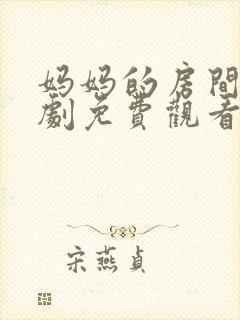 妈妈的房間
劇免費觀看
宋燕貞